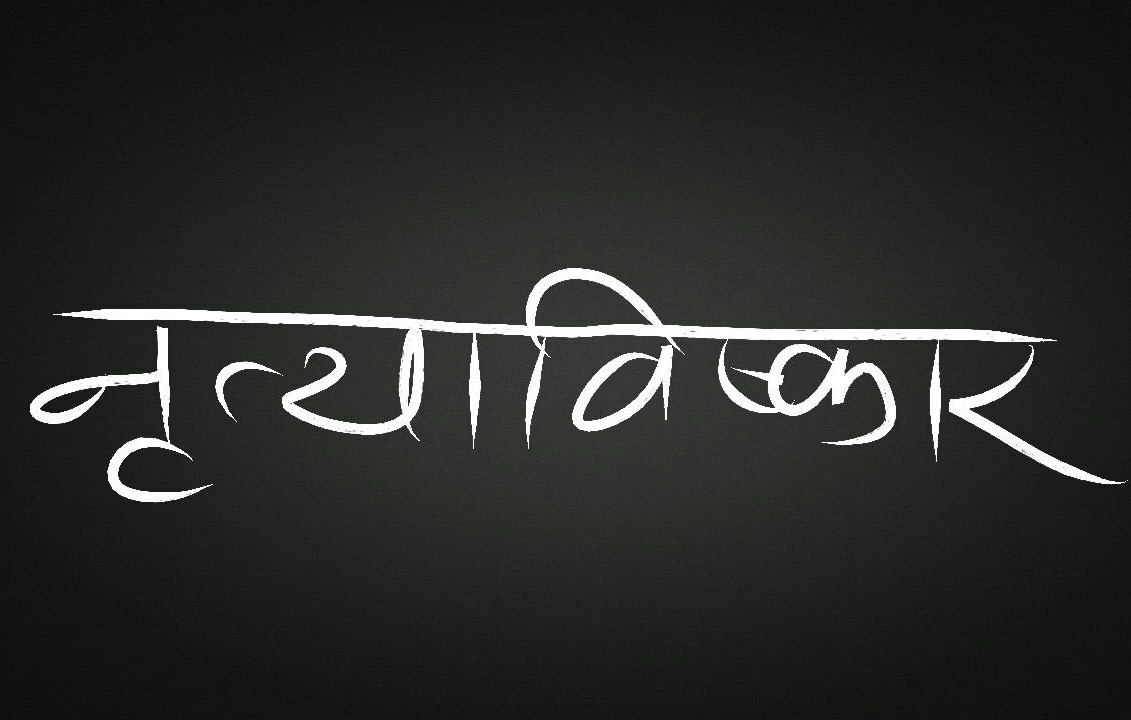 नृत्याविष्कार